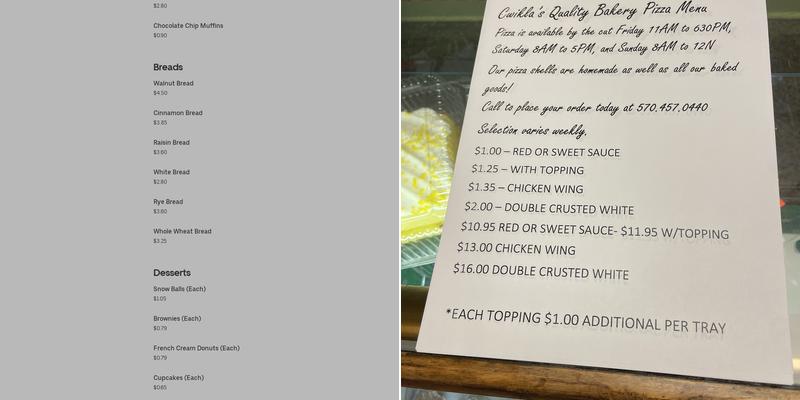 $2.80
Chocolate Chip Muffins
$0.90
Breads
Walnut Bread
$4.50
Cinnamon Bread
$3.85
Raisin Bread
$3.60
White Bread
$2.80
Rye Bread
$3.60
Whole Wheat Bread
$3.25
Desserts
Snow Balls (Each)
$1.05
Brownies (Each)
$0.79
French Cream Donuts (Each)
$0.79
Cupcakes (Each)
$0.65
Cwikla's Quality Bakery Pizza Menu
Pizza is available by the cut Friday 11AM to 630PM,
Saturday 8AM to 5PM, and Sunday 8AM to 12N
Our pizza shells are homemade as well as all our baked
goods!
Call to place your order today at 570.457.0440
Selection varies weekly.
$1.00 – RED OR SWEET SAUCE
$1.25 – WITH TOPPING
$1.35 – CHICKEN WING
$2.00 – DOUBLE CRUSTED WHITE
$10.95 RED OR SWEET SAUCE- $11.95 W/TOPPING
$13.00 CHICKEN WING
$16.00 DOUBLE CRUSTED WHITE
*EACH TOPPING $1.00 ADDITIONAL PER TRAY